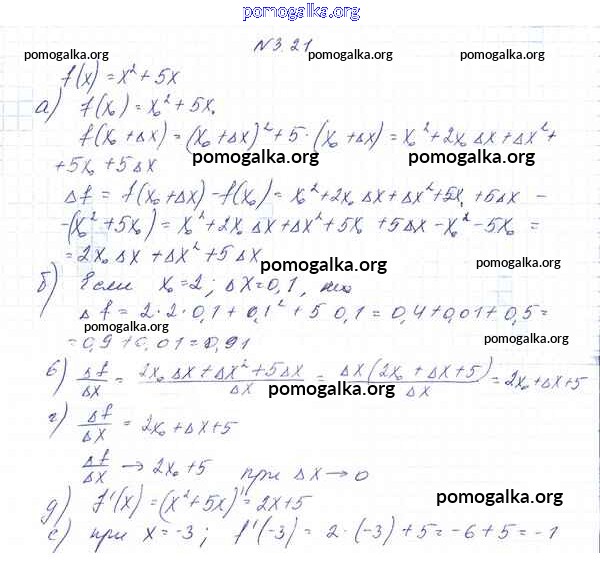 pomogalka.org
N 3.21
pomogalka.org pomogalka.org pomogalka.org
f(x) = x² + 5x
а) f(x₀) = x₀² + 5x₀
f(x₀ + Δx) = (x₀ + Δx)² + 5·(x₀ + Δx) = x₀² + 2x₀ Δx + Δx² +
pomogalka.org pomogalka.org
+ 5x₀ + 5Δx
Δf = f(x₀ + Δx) - f(x₀) = x₀² + 2x₀ Δx + Δx² + 5x₀ + 5Δx -
-(x₀² + 5x₀) = x₀² + 2x₀ Δx + Δx² + 5x₀ + 5Δx - x₀² - 5x₀ =
= 2x₀ Δx + Δx² + 5Δx
pomogalka.org pomogalka.org
б) Если x₀ = 2; Δx = 0,1, то
Δf = 2·2·0,1 + 0,1² + 5·0,1 = 0,4 + 0,01 + 0,5 =
pomogalka.org
= 0,9 + 0,01 = 0,91
в) Δf/Δx = (2x₀ Δx + Δx² + 5Δx)/Δx = Δx(2x₀ + Δx + 5)/Δx = 2x₀ + Δx + 5
pomogalka.org
г) Δf/Δx = 2x₀ + Δx + 5
pomogalka.org
Δf/Δx → 2x₀ + 5 при Δx → 0
д) f'(x) = (x² + 5x)' = 2x + 5
pomogalka.org
е) при x = -3; f'(-3) = 2·(-3) + 5 = -6 + 5 = -1